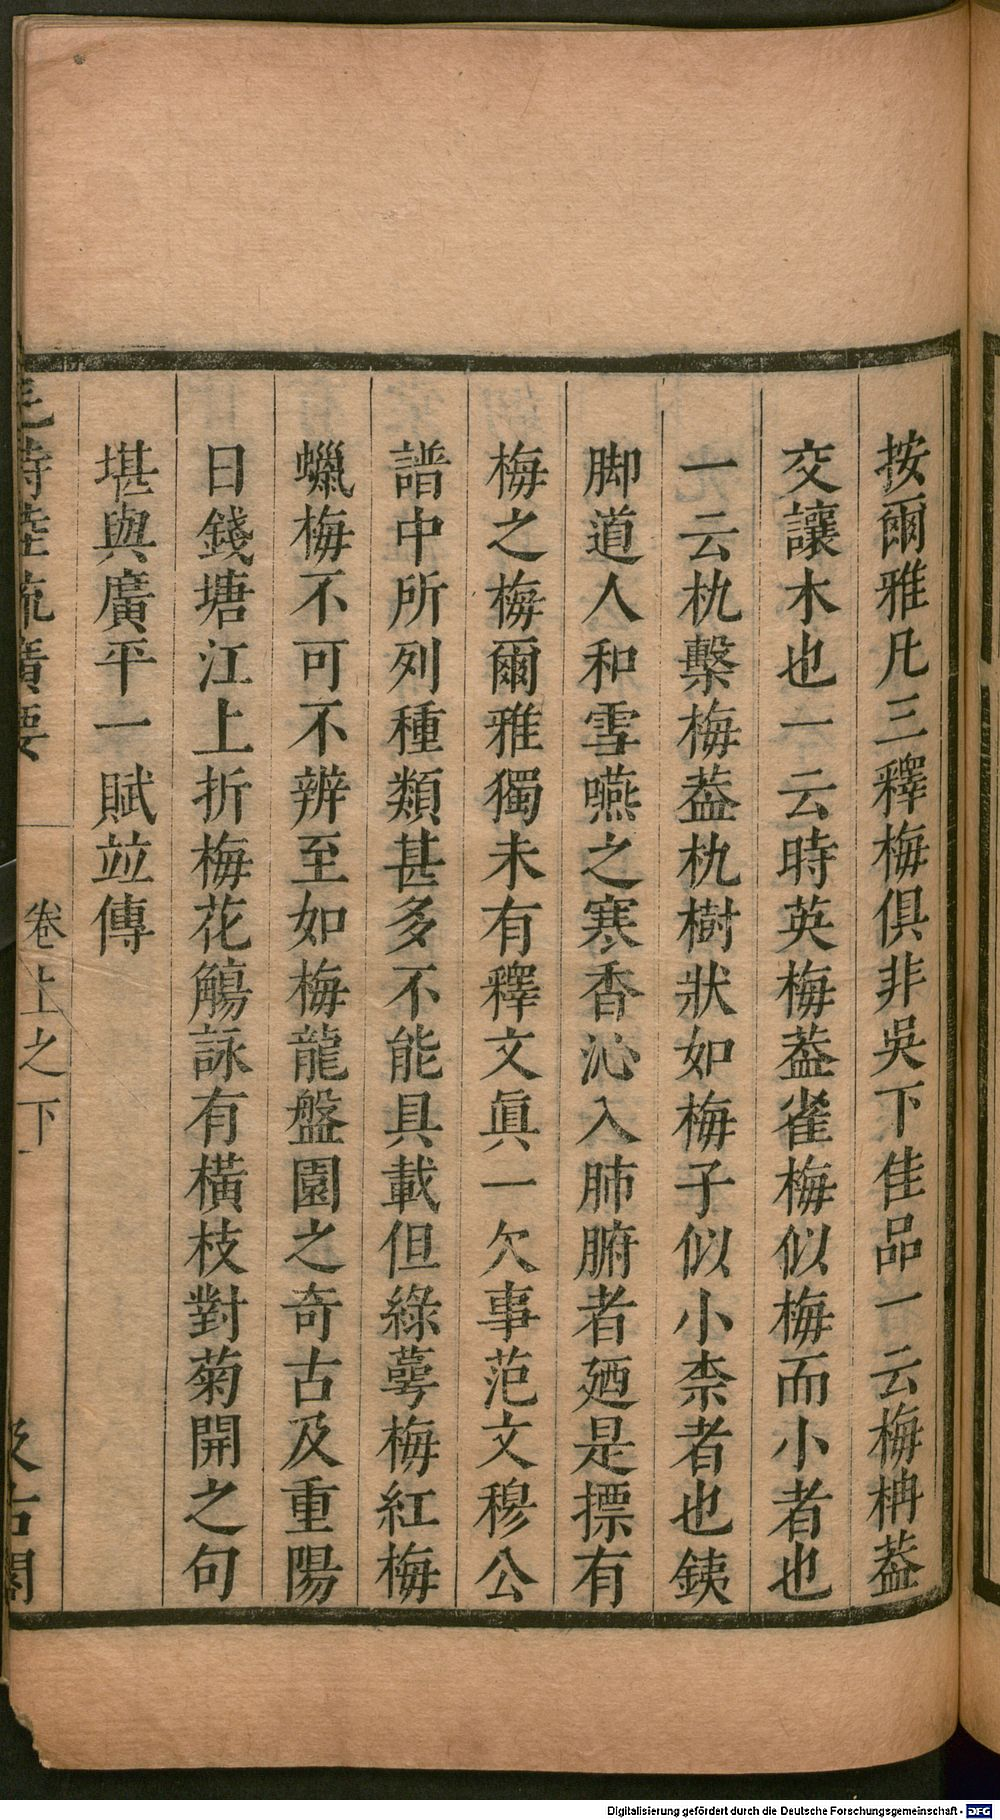 按爾雅凡三釋梅俱非吳下佳品一云梅柟葢
交讓木也一云時英梅葢雀梅似梅而小者也
一云朹檕梅葢朹樹狀如梅子似小柰者也銕
脚道人和雪嚥之寒香沁入肺腑者廼是摽有
梅之梅爾雅獨未有釋文眞一欠事范文穆公
譜中所列種類甚多不能具載但綠萼梅紅梅
蠟梅不可不辨至如梅龍盤園之奇古及重陽
日錢塘江上折梅花觴詠有橫枝對菊開之句
堪與廣平一賦並傳
毛詩陸疏廣要 卷上之下 汲古閣
Digitalisierung gefördert durch die Deutsche Forschungsgemeinschaft - DFG